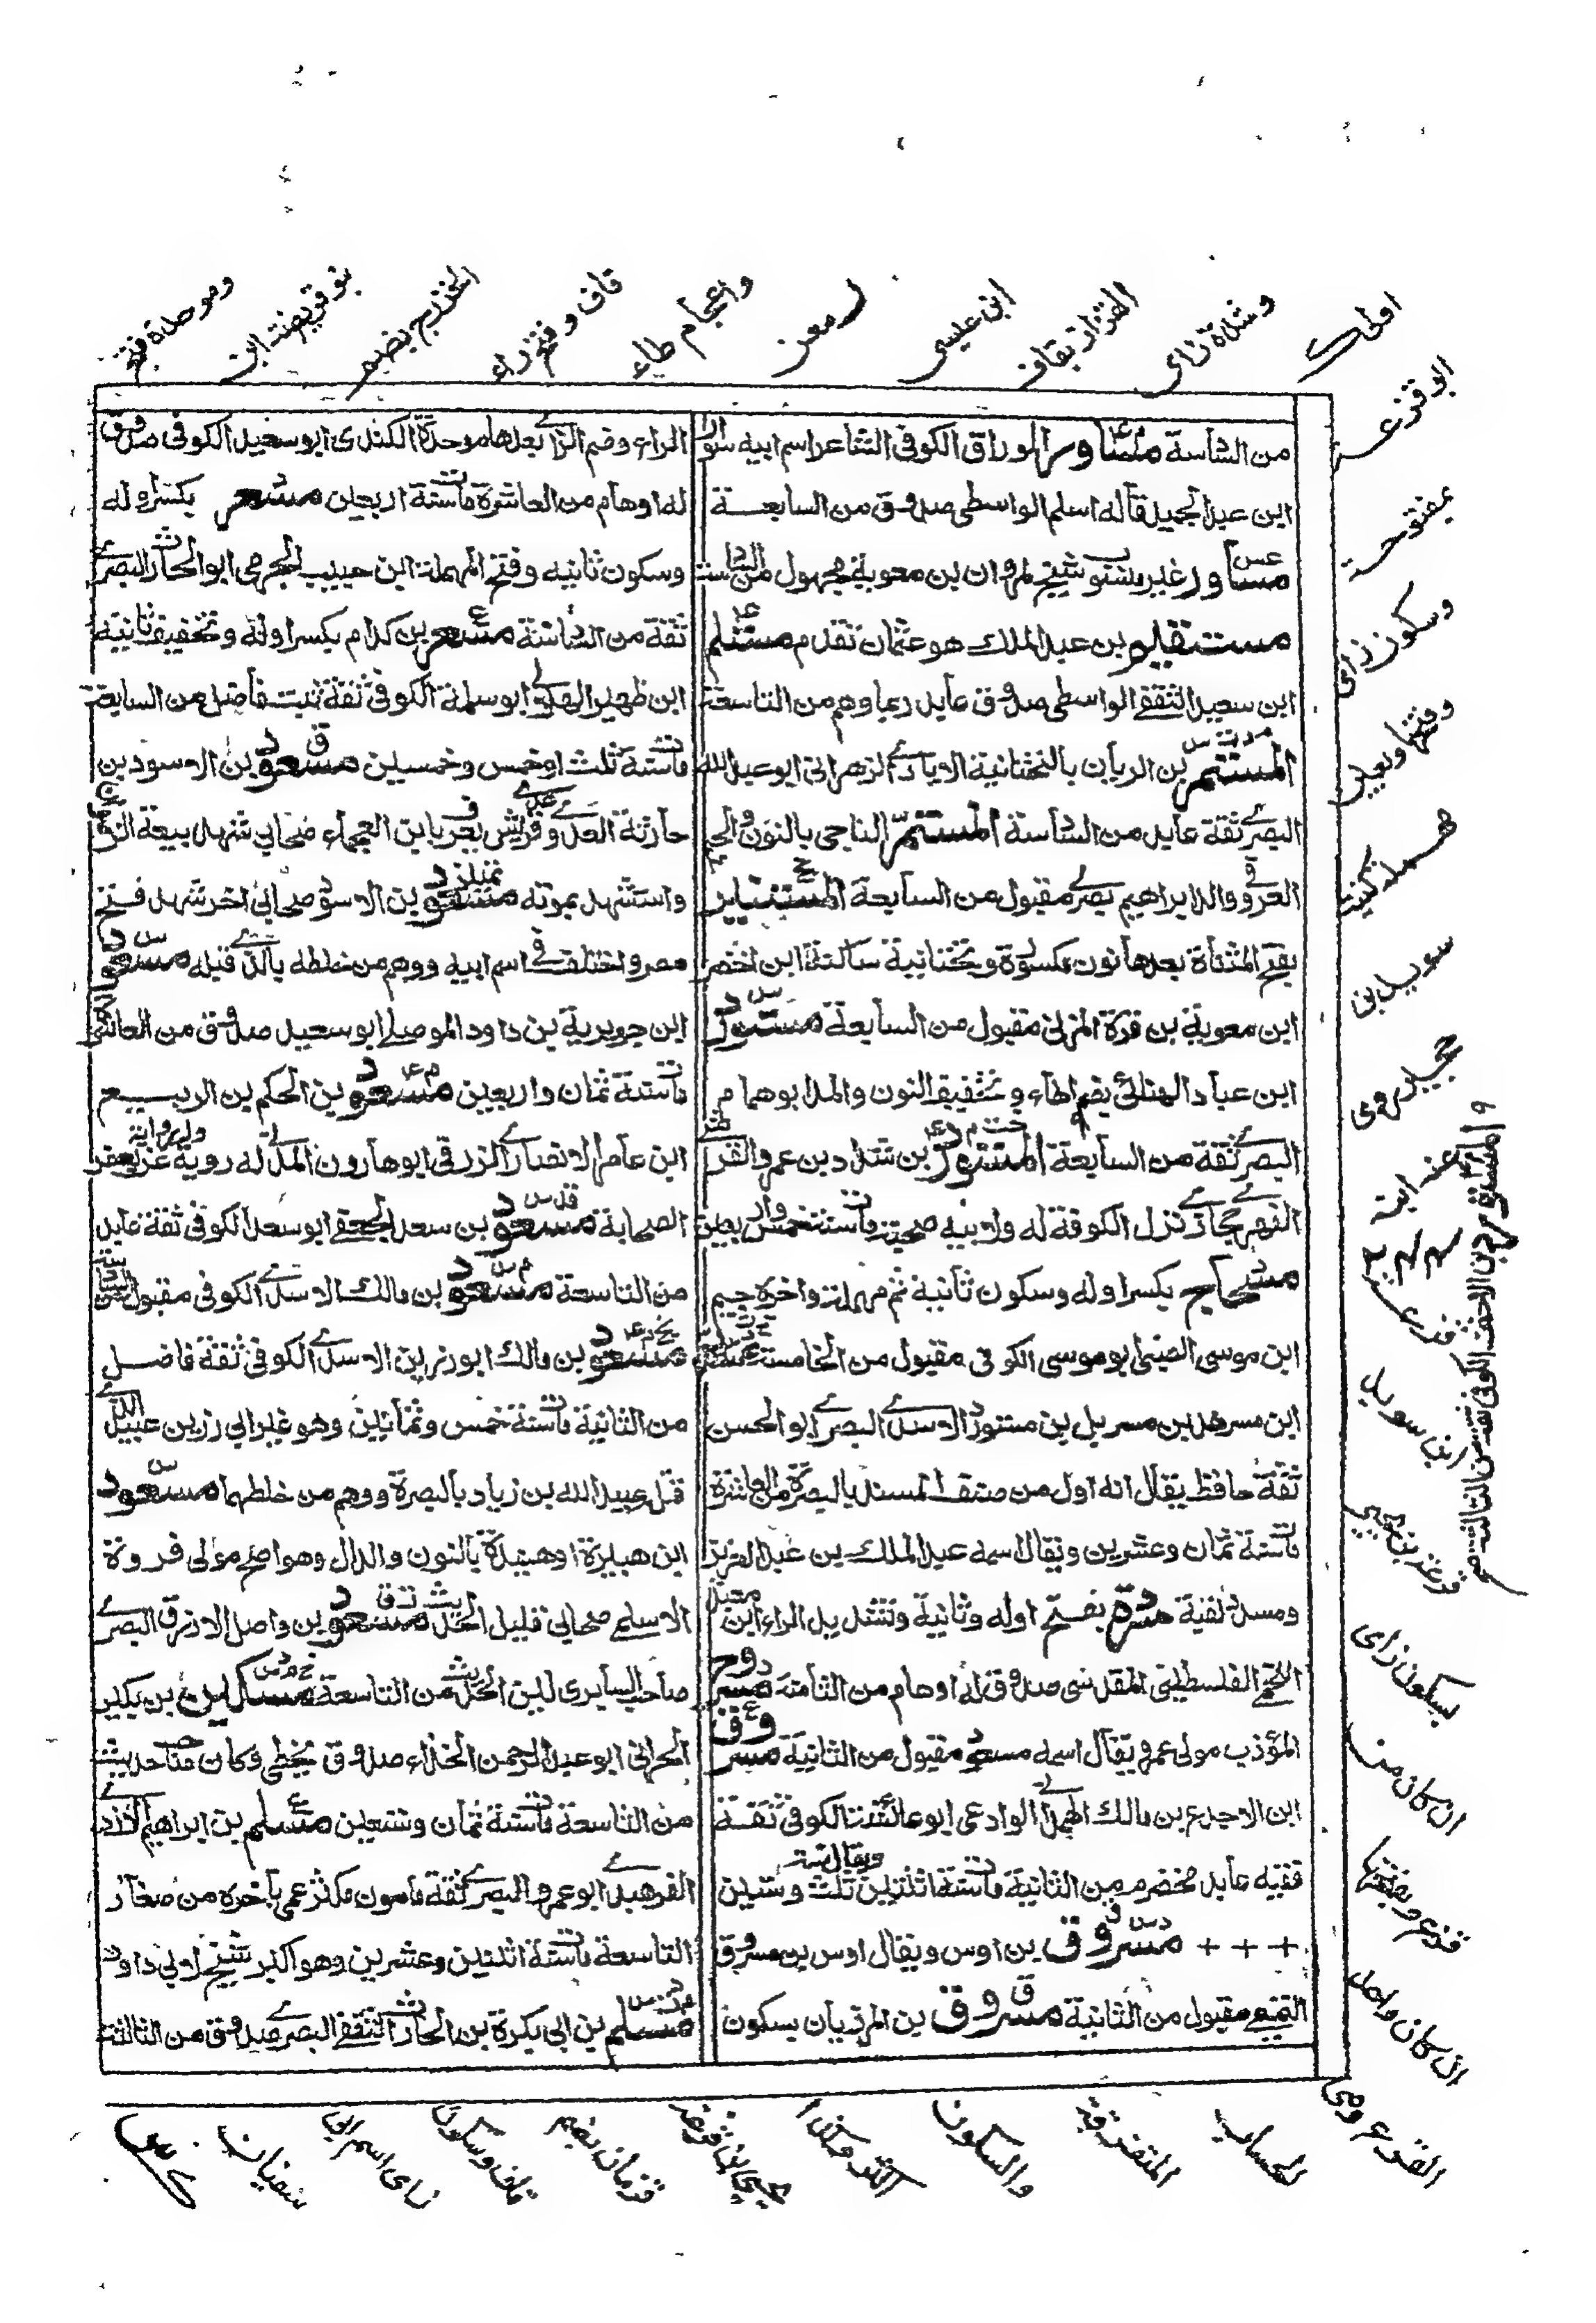 من السادسة مساور الوراق الكوفي الشاعر اسم ابيه سوار
ابن عبد الحميد قاله اسلم الواسطي صدوق من السابعة
مساور غير منسوب شيخ لمروان بن معوية مجهول من السادسة
مستقيم بن عبد الملك هو عثمان تقدم مستلم
ابن سعيد الثقفي الواسطي صدوق عابد ربما وهم من التاسعة
المستمر بن الريان بالتحتانية الايادي الزهراني ابو عبد الله
البصري ثقة عابد من السادسة المستمر الناجي بالنون والجيم
العروقي والد ابراهيم بصري مقبول من السابعة المستنير
بفتح المثناة بعدها نون مكسورة وتحتانية ساكنة ابن اخضر
ابن معوية بن قرة المزني مقبول من السابعة مستور
ابن عباد الهنائي بضم الهاء وتخفيف النون والمد ابو همام
البصري ثقة من السابعة المستورد بن شداد بن عمرو القرشي
الفهري حجازي نزل الكوفة له ولابيه صحبة مات سنة خمس واربعين
مسحاج بكسر اوله وسكون ثانيه ثم مهملة واخره جيم
ابن موسى الضبي ابو موسى الكوفي مقبول من الخامسة مسدد
ابن مسرهد بن مسربل بن مستورد الاسدي البصري ابو الحسن
ثقة حافظ يقال انه اول من صنف المسند بالبصرة من العاشرة
مات سنة ثمان وعشرين ويقال اسمه عبد الملك بن عبد العزيز
ومسدد لقبه مسرة بفتح اوله وثانيه وتشديد الراء ابن معبد
اللخمي الفلسطيني المقدسي صدوق له اوهام من الثامنة مسروح
المؤذب مولى عمر ويقال اسمه مسعود مقبول من الثانية مسروق
ابن الاجدع بن مالك الهمداني الوادعي ابو عائشة الكوفي ثقة
فقيه عابد مخضرم من الثانية مات سنة اثنتين ويقال سنة ثلث وستين
+ + + مسروق بن اوس ويقال اوس بن مسروق
التميمي مقبول من الثانية مسروق بن المرزبان بسكون
الراء وضم الزاي بعدها موحدة الكندي ابو سعيد الكوفي صدوق
له اوهام من العاشرة مات سنة اربعين مسعر بكسر اوله
وسكون ثانيه وفتح المهملة ابن حبيب الجرمي ابو الحارث البصري
ثقة من السادسة مسعر بن كدام بكسر اوله وتخفيف ثانيه
ابن ظهير الهلالي ابو سلمة الكوفي ثقة ثبت فاضل من السابعة
مات سنة ثلث او خمس وخمسين مسعود بن الاسود بن
حارثة العدوي قرشي يعرف بابن العجماء صحابي شهد بيعة الرضوان
واستشهد بموته مسعود بن الاسود صحابي اخر شهد فتح
مصر واختلف في اسم ابيه ووهم من خلطه بالذي قبله مسعود
ابن جويرية بن داود الموصلي ابو سعيد صدوق من العاشرة
مات سنة ثمان واربعين مسعود بن الحكم بن الربيع
ابن عامر الانصاري الزرقي ابو هارون المدني له روية وله رواية عن بعض
الصحابة مسعود بن سعد الجعفي ابو سعد الكوفي ثقة عابد
من التاسعة مسعود بن مالك الاسدي الكوفي مقبول من السادسة
مسعود بن مالك ابو رزين الاسدي الكوفي ثقة فاضل
من الثانية مات سنة خمس وثمانين وهو غير ابي رزين عبيد الذي
قتل عبيد الله بن زياد بالبصرة ووهم من خلطهما مسعود
ابن هبيرة او هنيدة بالنون والدال وهو اصح مولى فروة
الاسلمي صحابي قليل الحديث مسعود بن واصل الازرق البصري
صاحب السابري لين الحديث من التاسعة مسكين بن بكير
الحراني ابو عبد الرحمن الحذاء صدوق يخطئ وكان صاحب حديث
من التاسعة مات سنة ثمان وتسعين مسلم بن ابراهيم الازدي
الفرهيدي ابو عمرو البصري ثقة مامون مكثر عمي باخره من صغار
التاسعة مات سنة اثنتين وعشرين وهو اكبر شيخ لابي داود
مسلم بن ابي بكرة بن الحارث الثقفي البصري صدوق من الثالثة
وموحدة فتح
بنو قريضة ابن
الخزرج بضم
قاف وفتح راء
واعجام طاء
معن
ابن عيسى
القزاز بقاف
وشدة زاي
ابو قزعة
بمفتوحة
وسكون زاي
وفتحها وبعين
مهملة كنية
سويد بن
حجير روى
عنه ابنه
قزعة
ابن سويد
قزعة بن يحيى
بسكون زاي
المستورد بن الاحنف الكوفي ثقة من الثالثة